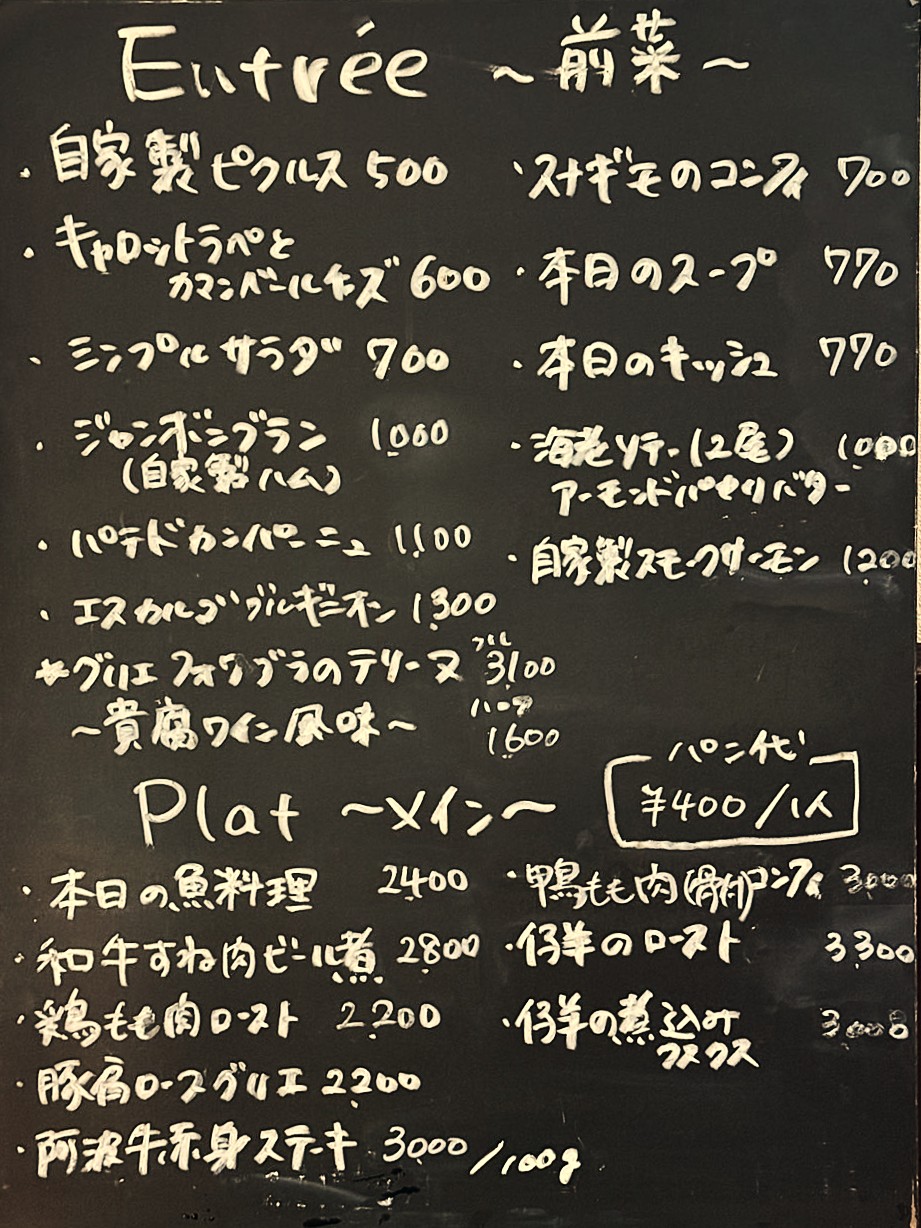 Entrée ～前菜～
・自家製ピクルス 500
・キャロットラペと
カマンベールチーズ 600
・シンプルサラダ 700
・ジャンボンブラン 1,000
(自家製ハム)
・パテドカンパーニュ 1,100
・エスカルゴブルギニオン 1,300
*グリエフォワグラのテリーヌ フル 3,100
～貴腐ワイン風味～ ハーフ 1,600
・スナギモのコンフィ 700
・本日のスープ 770
・本日のキッシュ 770
・海老ソテー(2尾) 1,000
アーモンドパセリバター
・自家製スモークサーモン 1,200
Plat ～メイン～
パン代
¥400/1人
・本日の魚料理 2,400
・和牛すね肉ビール煮 2,800
・鶏もも肉ロースト 2,200
・豚肩ロースグリエ 2,200
・阿波牛赤身ステーキ 3,000/100g
・鴨もも肉(骨付)コンフィ 3,000
・仔羊のロースト 3,300
・仔羊の煮込み
クスクス